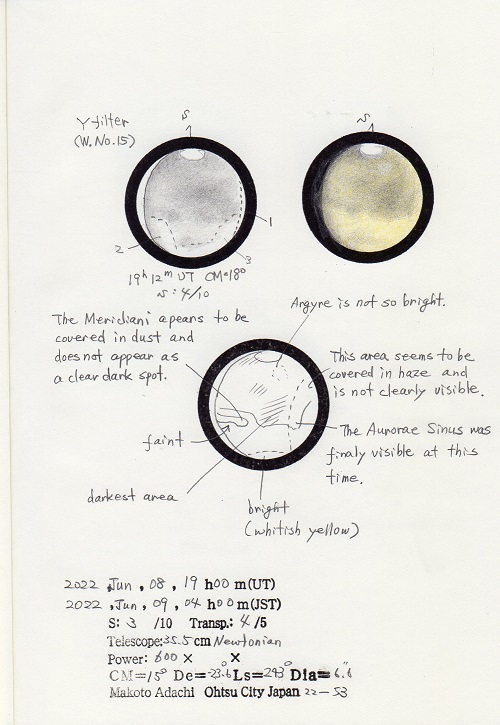 Y-filter
(W.No.15)
S
S
1
2
3
19h 12m UT CM=18°
S: 4/10
Argyre is not so bright.
The Meridiani apears to be
covered in dust and
does not appear as
a clear dark spot.
This area seems to be
covered in haze and
is not clearly visible.
faint
The Aurorae Sinus was
finaly visible at this
time.
darkest area
bright
(whitish yellow)
2022, Jun, 08, 19 h00 m(UT)
2022, Jun, 09, 04 h00 m(JST)
S: 3 /10 Transp.: 4 /5
Telescope:35.5 cm Newtonian
Power: 600 × ×
CM=15° De=-23.6° Ls=243° Dia=6.6"
Makoto Adachi Ohtsu City Japan 22-53